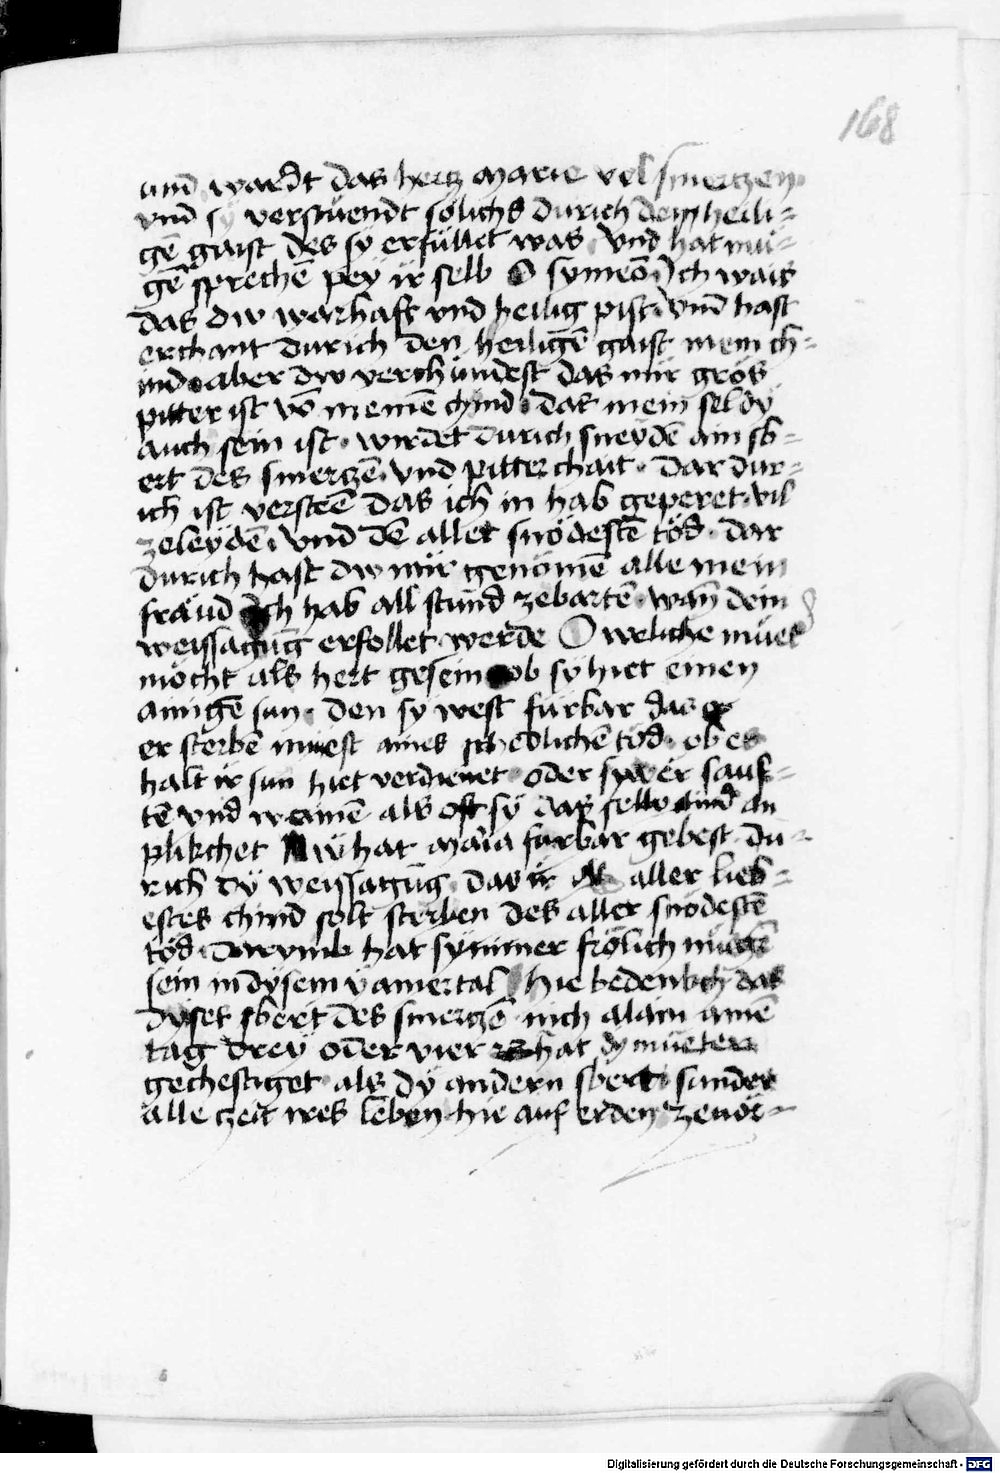 168
und wardt das hertz marie vol smertzen
vnd sy verstuendt solichs durich dem heili=
gē gaist des sy erfüllet was vnd hat mü=
gē sprechē pey ir selb O symeō Ich wais
das dw warhaft vnd heilig pist vnd hast
erchant durich den heiligē gaist mein ch=
ind aber dw verchündest das mir gros
pitter ist vō meinē chind das mein sel dy
auch sein ist wirdet durich sneydē ain sb=
ert des smertzē vnd pitterchait dar dur=
ich ist verstēē das ich in hab geperet vil
zeleydē vnd dē aller snödestē töd dar
durich hast dw mir genömē alle mein
fräud Ich hab all stund zebartē wan dein
weissagūg erfollet werde O weliche müet
möcht als hert gesein ob sy hiet einen
ainigē sun den sy west fürbar das
er sterbē müest aines schedlichē töd ob es
halt ir sun hiet verdienet oder swer sauf=
tē vnd wainē als oft sy das selb chind an
plikchet Nw hat maria fürbar gebest du=
rich dy weissagūg das ir aller lieb=
estes chind solt sterben des aller snödestē
töd Darvmb hat sy nimer frölich mügē
sein in dysem yamertal hie bedenkch das
dyses sbert des smertzē nich alain ainē
tag drey oder vier hat dy mueter
gechestiget als dy andern sbert sunder
alle zeit ires leben hie auf erden zenör=
Digitalisierung gefördert durch die Deutsche Forschungsgemeinschaft - DFG